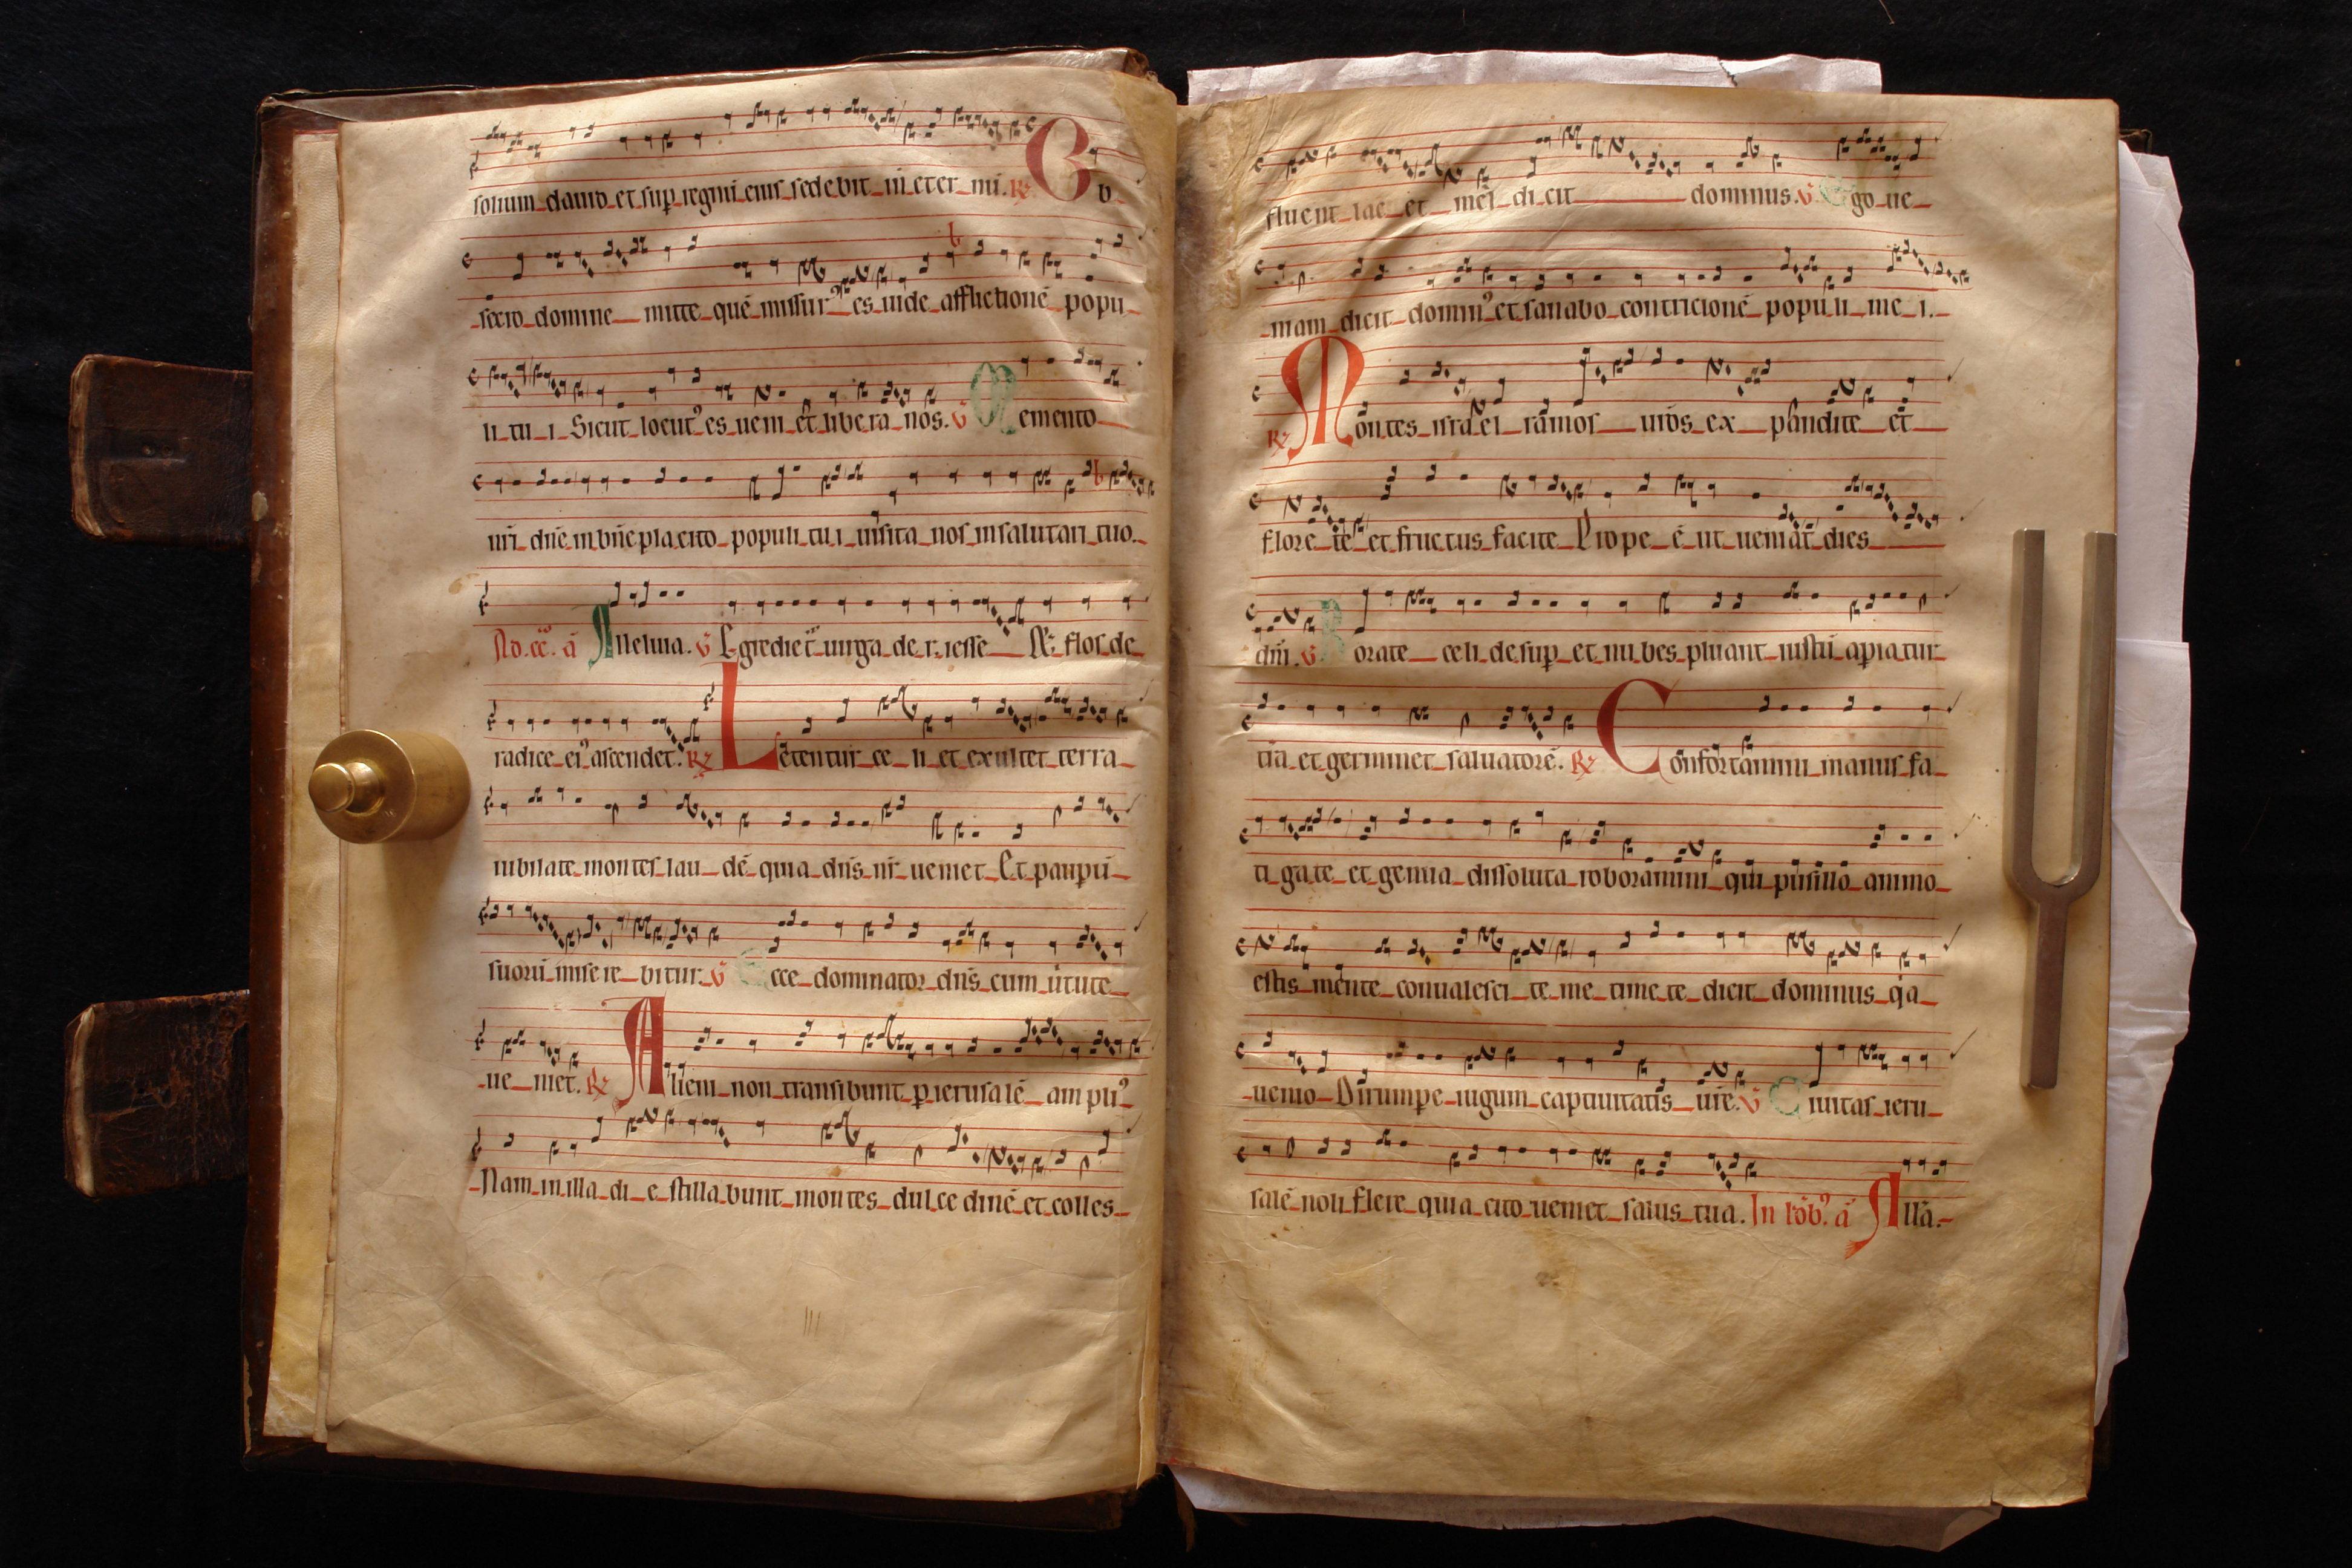 solium_dauid_et sup_regnū eius_sedebit_in eter_nū. R℣ Ob_
_secro_domine_ mitte_quē_missurꝰ es_uide_afflictionē_popu_
li_tu_i_Sicut_locutꝰ es_ueni_et libe ra_nos. V̄ Memento_
nr̄i_dn̄e_in bn̄e pla cito_populi_tu i_uisita_nos in salutari_tuo._
Ad. cc̄. ā Alleluia. V̄ Egrediet᷑ uirga_de_r. iesse_ Et flos de_
radice_eiꝰ ascendet. R℣ Letentur_ce_li_et_exultet_terra_
iubilate_montes_lau_dē_quia_dn̄s_nr̄_ueniet_Et pauꝑū_
suorū_mise re_bitur. V̄ Ecce_dominator_dn̄s_cum_ūtute_
_ue_niet. R℣ Aliem_non_transibunt_ꝑ ierusalē_am pliꝰ_
_Nam_in illa_di_e_stilla bunt_montes_dul ce dinē_et colles_
fluent_lac_et_mel_di cit_dominus. V̄ Ego_ue_
_niam_dicit_dominꝰ et sanabo_contricionē_popu li_me_i._
R℣ Montes_isra el_ramos_ur̄os_ex_pandite_et_
flore_te_et fructus_facite_Prope_ē_ut_ueniāt_dies_
dn̄i. V̄ Rorate_celi_de sup_et_nu bes_pluant_iustū_apia tur_
t̄ra_et germinet_saluatorē. R℣ Confortamini_manus_fa_
ti ga te_et_genua_dissoluta_roboramini_qui_pusillo_animo_
estis_mente_conualesci_te_ne_time te_dicit_dominus_qͥa_
_uenio_Dirumpe_iugum_captiuitatis_ur̄e. V̄ Ciuitas_ieru_
salē_noli_flere_quia_cito_ueniet_salus_tua. In lōb.ꝰ ā Allā._